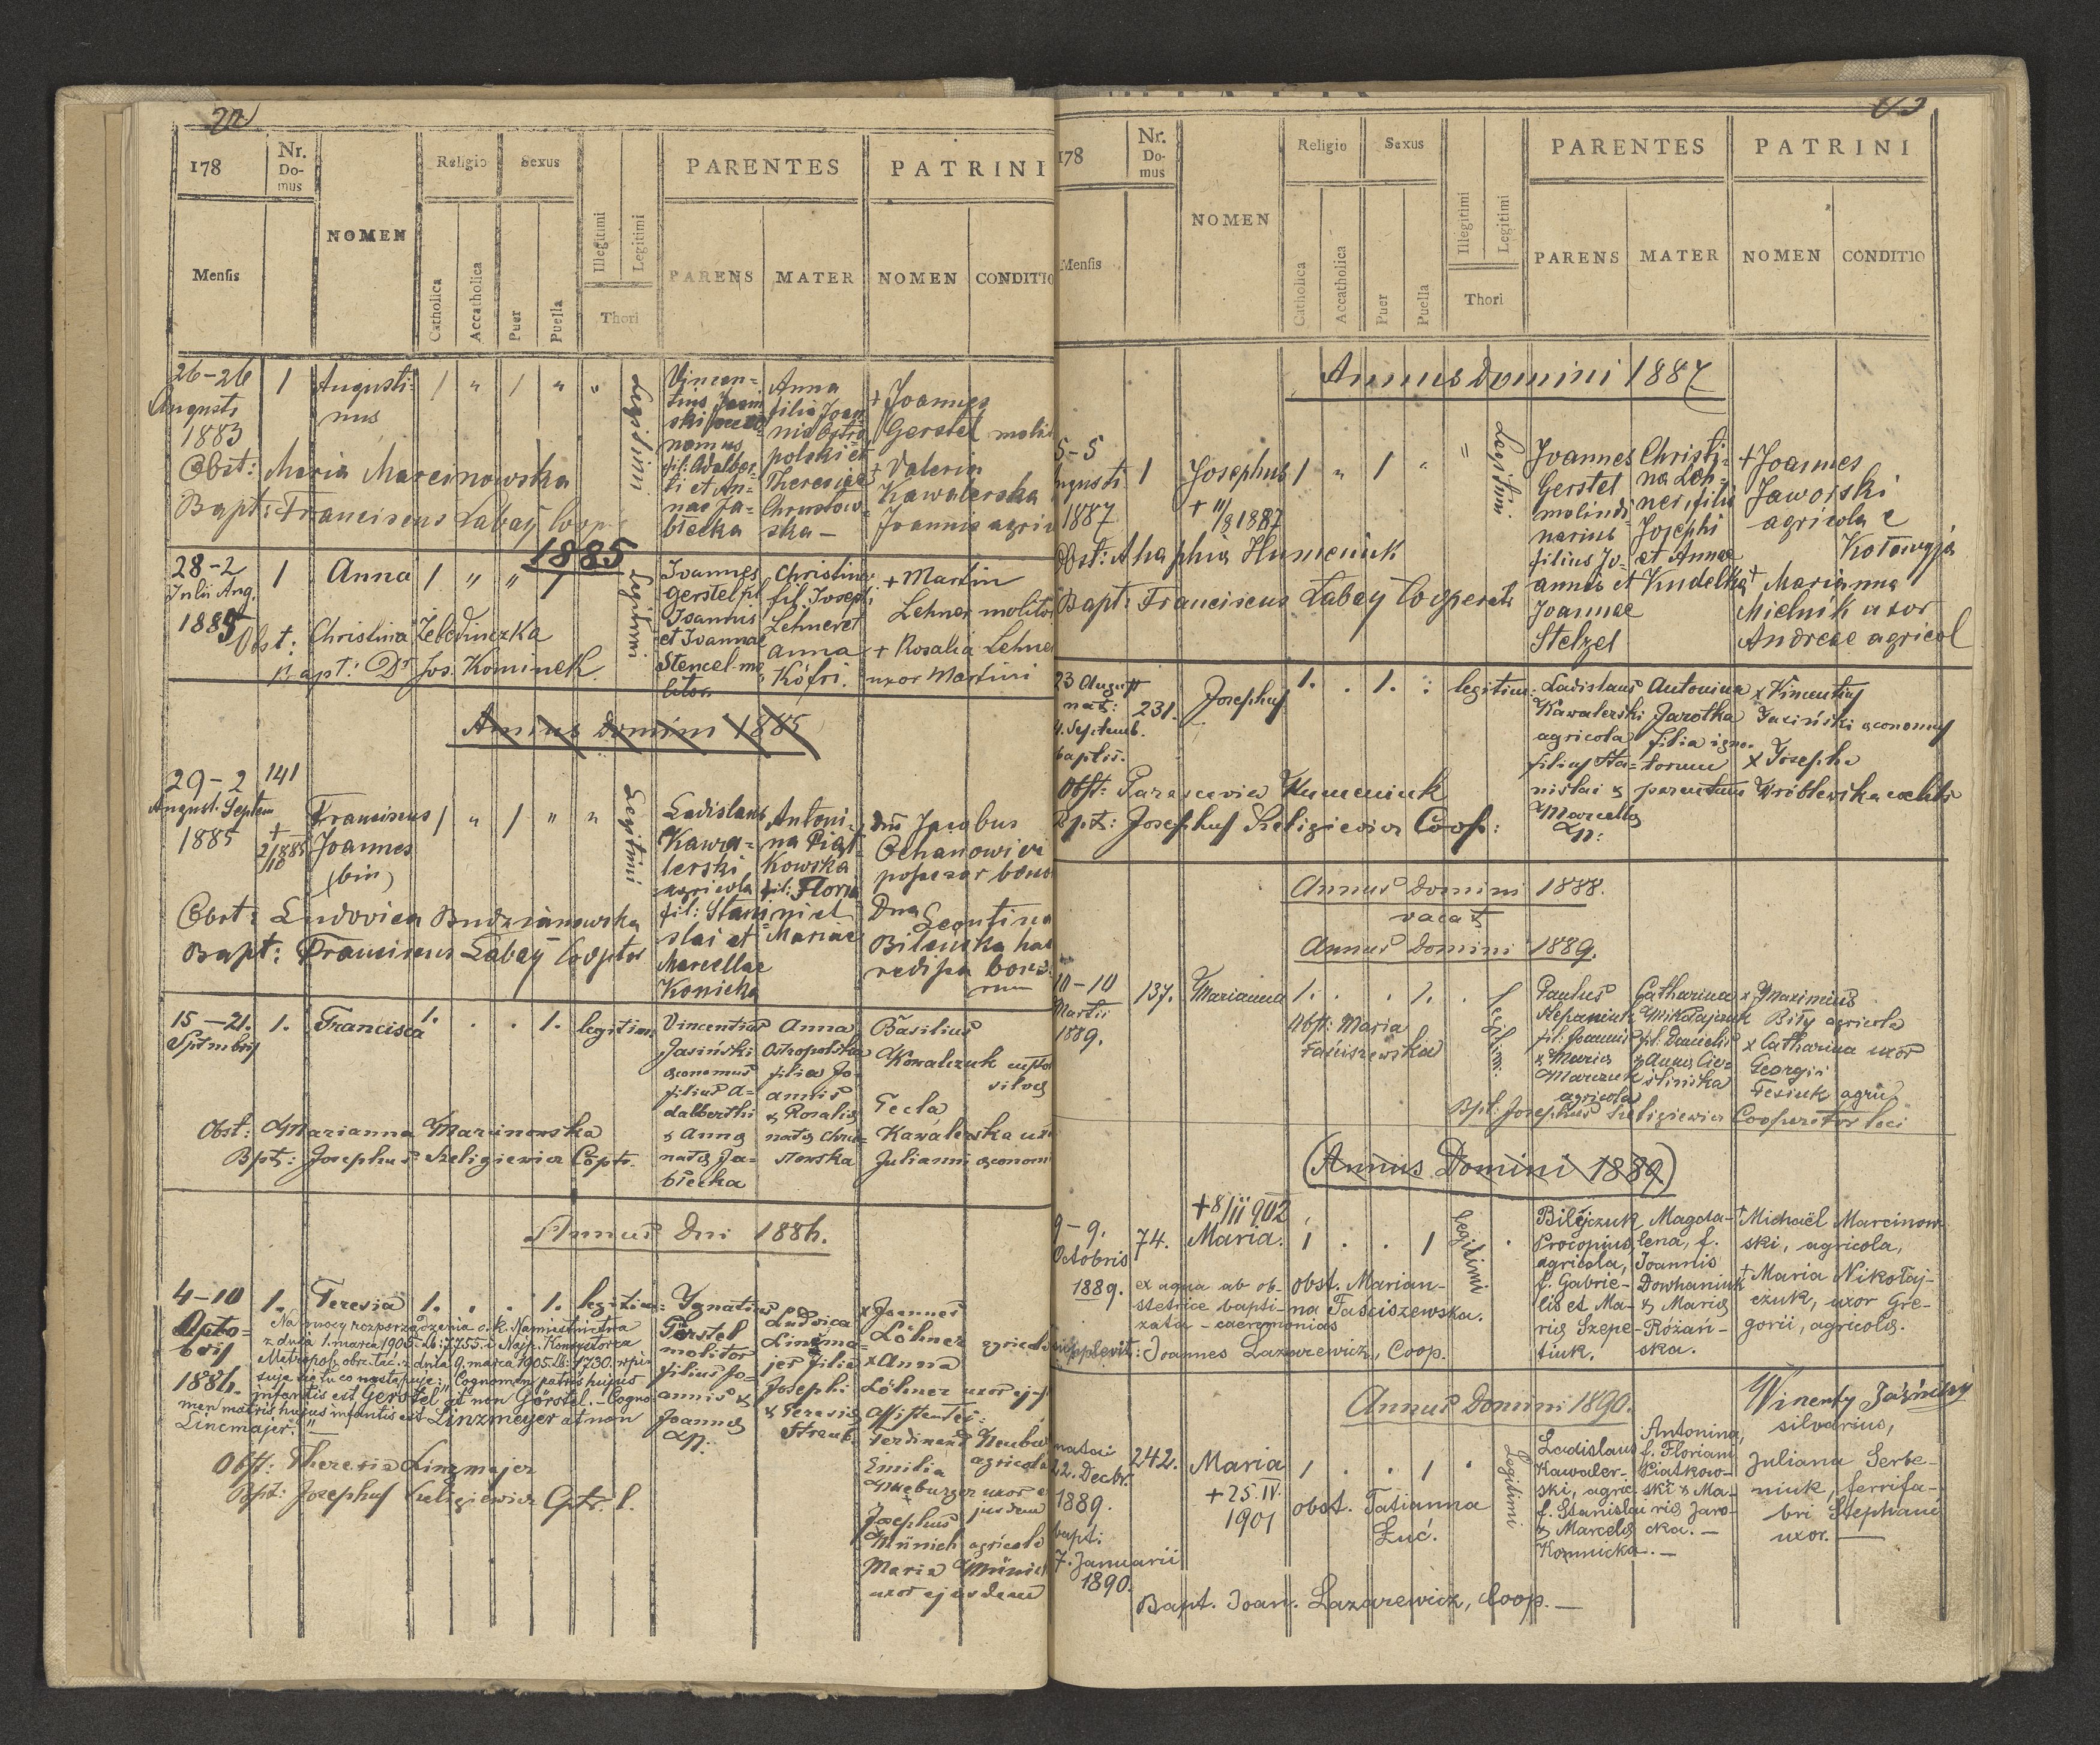 22
178
Nr.
Do-
mus
NOMEN
Religio
Sexus
PARENTES
PATRINI
Mensis
Catholica
Accatholica
Puer
Puella
Illegitimi
Legitimi
Thori
PARENS
MATER
NOMEN
CONDITIO
26-26
Augusti
1883
1
Augusti-
nus
/ " / " "
Legitimi
Vincen-
tius
ski
nomus
fil: Adalber-
ti et An-
nae Ja-
biecka
Anna
filia Joan
nis Ostro
polski et
Theresiae
Chrustow-
ska —
+ Joannes
Gerstel
+ Valeria
Kawalerska
Joannis agri
Obst: Maria Marcinowska
Bapt: Franciscus Labay Coop
1885
28-2
Julii Aug.
1885
1
Anna
/ " " /
Legitimi
Joannes
Gerstel fil
Joannis
et Joannae
Stencel mo
litor
Christina
fil. Josephi
Lehner et
Anna
Köfri.
+ Martin
Lehner molitor
+ Rosalia Lehner
uxor Martini
Obst: Christina Zebedinczka
Bapt: Dr Jos. Kominek.
Annus Domini 1885
29-2
August. Septem
1885
141
Franciscus
Joannes
(bin)
/ " / " "
Legitimi
Ladislaus
Kawa-
lerski
agricola
fil: Stani
slai et
Marcellae
Konicka
Antoni-
na Piąt-
kowska
fil: Flori
ni et
Mariae
Dnũ Jacobus
Ochanowicz
possesor bono
Dna Leontina
Bilinska hae
redissa bono-
rum
Obst: Ludovica Budzianowska
Bapt: Franciscus Labay Cooptor
15-21.
Septmbris
1.
Francisca
1. . . 1.
legitim
Vincentius
Jasiński
oeconomus
filius A-
dalberthi
& Anna
natis Ja-
biecka
Anna
Ostropolska
filia Jo-
annis
& Rosalia
natis Chru-
stowska
Basilius
Kowalczuk custos
silvae
Tecla
Kawalerska uxor
Julianni oeconomi
Obst: Marianna Marcinowska
Bpt: Josephus Szeligiewicz Copts.
Annus Dni 1886.
4-10
Octo-
bris
1886.
1.
Teresia
1. . . 1.
legitim:
Ignatius
Gerstel
molitor
filius Jo-
annis &
Joanna
Ludvica
Lincma-
jer filia
Josephi
& Teresia
Straub.
x Joannes
Löhner agricola
x Anna
Löhner uxor ejus
Assistentes:
Ferdinand Neubur
agricola
Emilia
Neuburger uxor e
jusdem
Josephus
Münich agricola
Maria Münich
uxor ejusdem
Na mocy rozporządzenia c.k. Namiestnictwa
z dnia 1. marca 1905. Lb: 2755. i Najp. Konsystorza
Metropol. obr. łać. z dnia 9. marca 1905. Lb: 1730. wpi-
suje się tu co następuje: "Cognomen patris hujus
infantis est Gerstel at non Görstel. - Cogno-
men matris hujus infantis est Linzmeyer at non
Lincmajer."
Obst: Theresia Linzmajer
Bpt: Josephus Szeligiewicz Cptr. l.
178
Nr.
Do-
mus
NOMEN
Religio
Sexus
PARENTES
PATRINI
Mensis
Catholica
Accatholica
Puer
Puella
Illegitimi
Legitimi
Thori
PARENS
MATER
NOMEN
CONDITIO
Annus Domini 1887
5-5
Augusti
1887
1
Josephus
+ 11/8 1887
/ " / " "
Legitimi
Joannes
Gerstel
molindi-
narius
filius Jo-
annis et
Joannae
Stelzel
Christi-
na Leh-
ner, filia
Josephi
et Annae
Kudelka
+ Joannes
Jaworski
agricola e
Kołowyja
+ Marianna
Mielnik uxor
Andreae agricol
Obst: Ahaphia Humeniuk
Bapt: Franciscus Labay Cooperat
23 August
nat:
4. Septemb.
baptis.
231.
Josephus
1. . 1. :
legitim:
Ladislaus
Kawalerski
agricola
filius Sta-
nislai &
Marcella
Antonina
Jarotka
filia igno-
torum
parentum
x Vincentius
Jasiński oeconomus
x Josepha
Wróblewska caelebs
Obst: Parascevia Humeniuk
Bpt: Josephus Szeligiewicz Coop:
Annus Domini 1888.
vacat
Annus Domini 1889.
10-10
Martii
1889.
137.
Marianna
1. . . 1. .
legitimi
Paulus
Stepaniuk
fil: Joannis
& Maria
Marczuk
agricola
Catharina
Mikołajczuk
fil: Danielis
& Anna Cie-
slinska
x Maximius
Biły agricola
x Catharina uxor
Georgii
Fesiuk agric
Obst: Maria
Faściszewska
Bpt: Josephus Szeligiewicz Cooperator loci
(Annus Domini 1889)
9-9.
Octobris
1889.
74.
+8/II 902
Maria.
1 . . 1
Legitimi
Bilejczuk
Procopius,
agricola,
f. Gabrie-
lis et Ma-
ria Szepe-
tiuk.
Magda-
lena, f.
Joannis
Dowhaniuk
& Maria
Różań-
ska.
+ Michaël Marcinow-
ski, agricola,
+ Maria Nikołaj-
czuk, uxor Gre-
gorii, agricola.
ex aqua ab ob-
stetrice bapti-
zata - caeremonias
obst. Marian-
na Faściszewska.
supplevit: Joannes Lazarewicz, Coop.
Annus Domini 1890.
natai
22. Decbr.
1889.
bapt:
7. Januarii
1890.
242.
Maria
+ 25.IV.
1901
1 . . 1 .
Legitimi
Ladislaus
Kawaler-
ski, agric
f. Stanislai
& Marcela
Komnicka. —
Antonina,
f. Floriani
Piatkow-
ski & Ma-
ria Jaro-
cka. —
Wincenty Jaźnicky
silvarius,
Juliana Serbe-
niuk, ferrifa-
bri Stephani
uxor. —
obst. Tatianna
Łuć.
Bapt. Joan. Lazarewicz, Coop. —